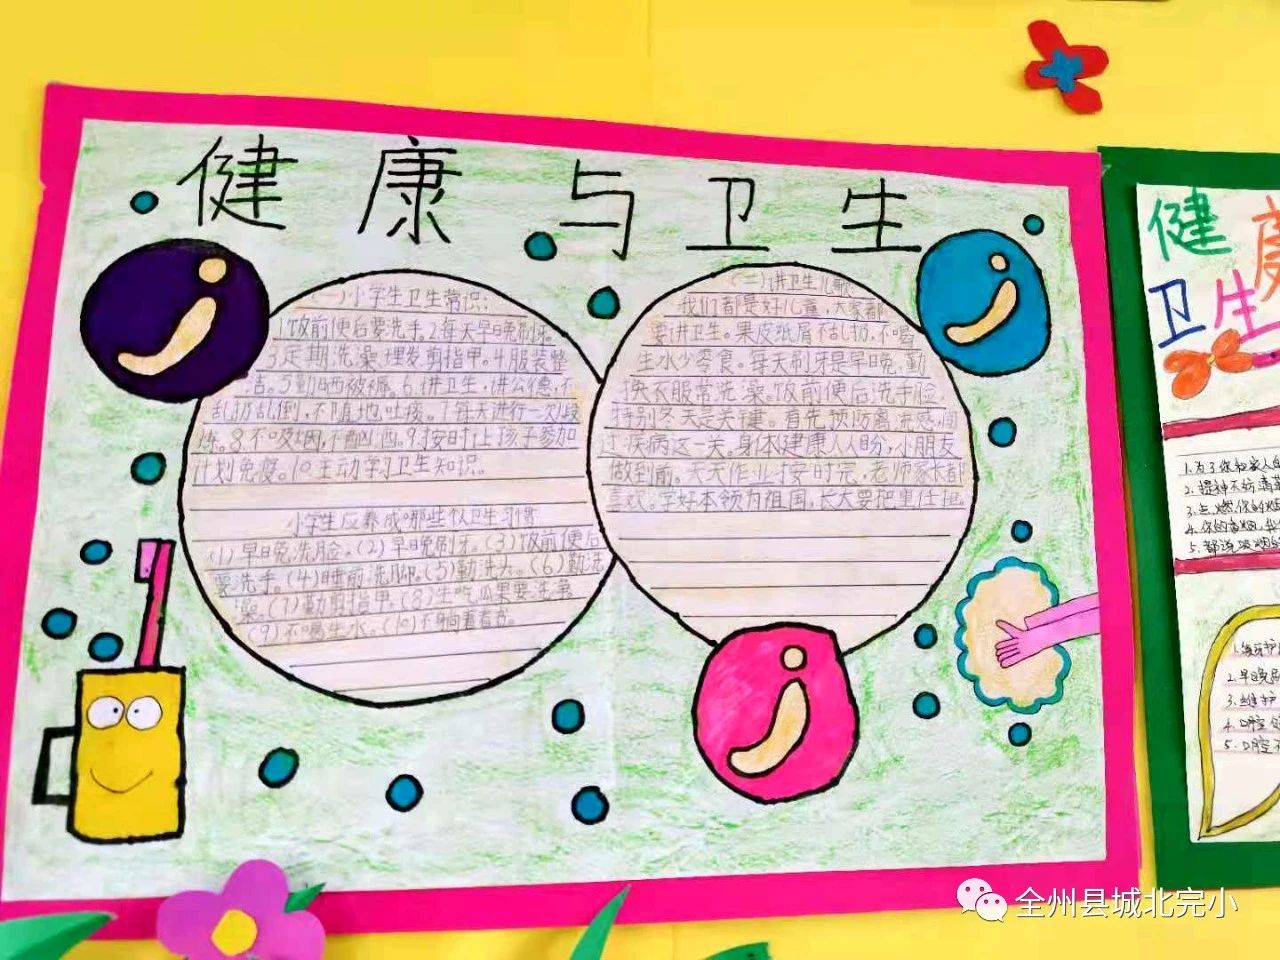 健康与卫生
(一)小学生卫生常识:
1饭前便后要洗手.2每天早晚刷牙.
3定期洗澡理发剪指甲.4服装整
洁。5勤晒被褥.6.讲卫生,讲公德,不
乱扔乱倒,不随地吐痰。7每天进行一次锻
炼。8.不吸烟,不酗酒。9.按时让孩子参加
计划免疫。10.主动学习卫生知识。
小学生应养成哪些
卫生习惯
(1)早晚洗脸。(2)早晚刷牙。(3)饭前便后
要洗手。(4)睡前洗脚。(5)勤洗头。(6)勤洗
澡。(7)勤剪指甲。(8)生吃瓜果要洗净
(9)不喝生水。(10)不
(二)讲卫生儿歌
我们都是好儿童,大家都
要讲卫生。果皮纸屑不乱扔,不喝
生水少零食。每天刷牙是早晚,勤
换衣服常洗澡。饭前便后洗手脸,
特别冬天是关键。首先预防流感
过疾病这一关。身体健康人人盼,小朋友
做到前。天天作业按时完,老师家长都
喜欢。学好本领为祖国,长大要把重任担
健康
卫生
1.为了你和家人的
2.提神不妨清
3.点燃
4.你的
5.都说吸烟
2.早晚刷
3.维护
4.口腔
5.口腔
全州县城北完小